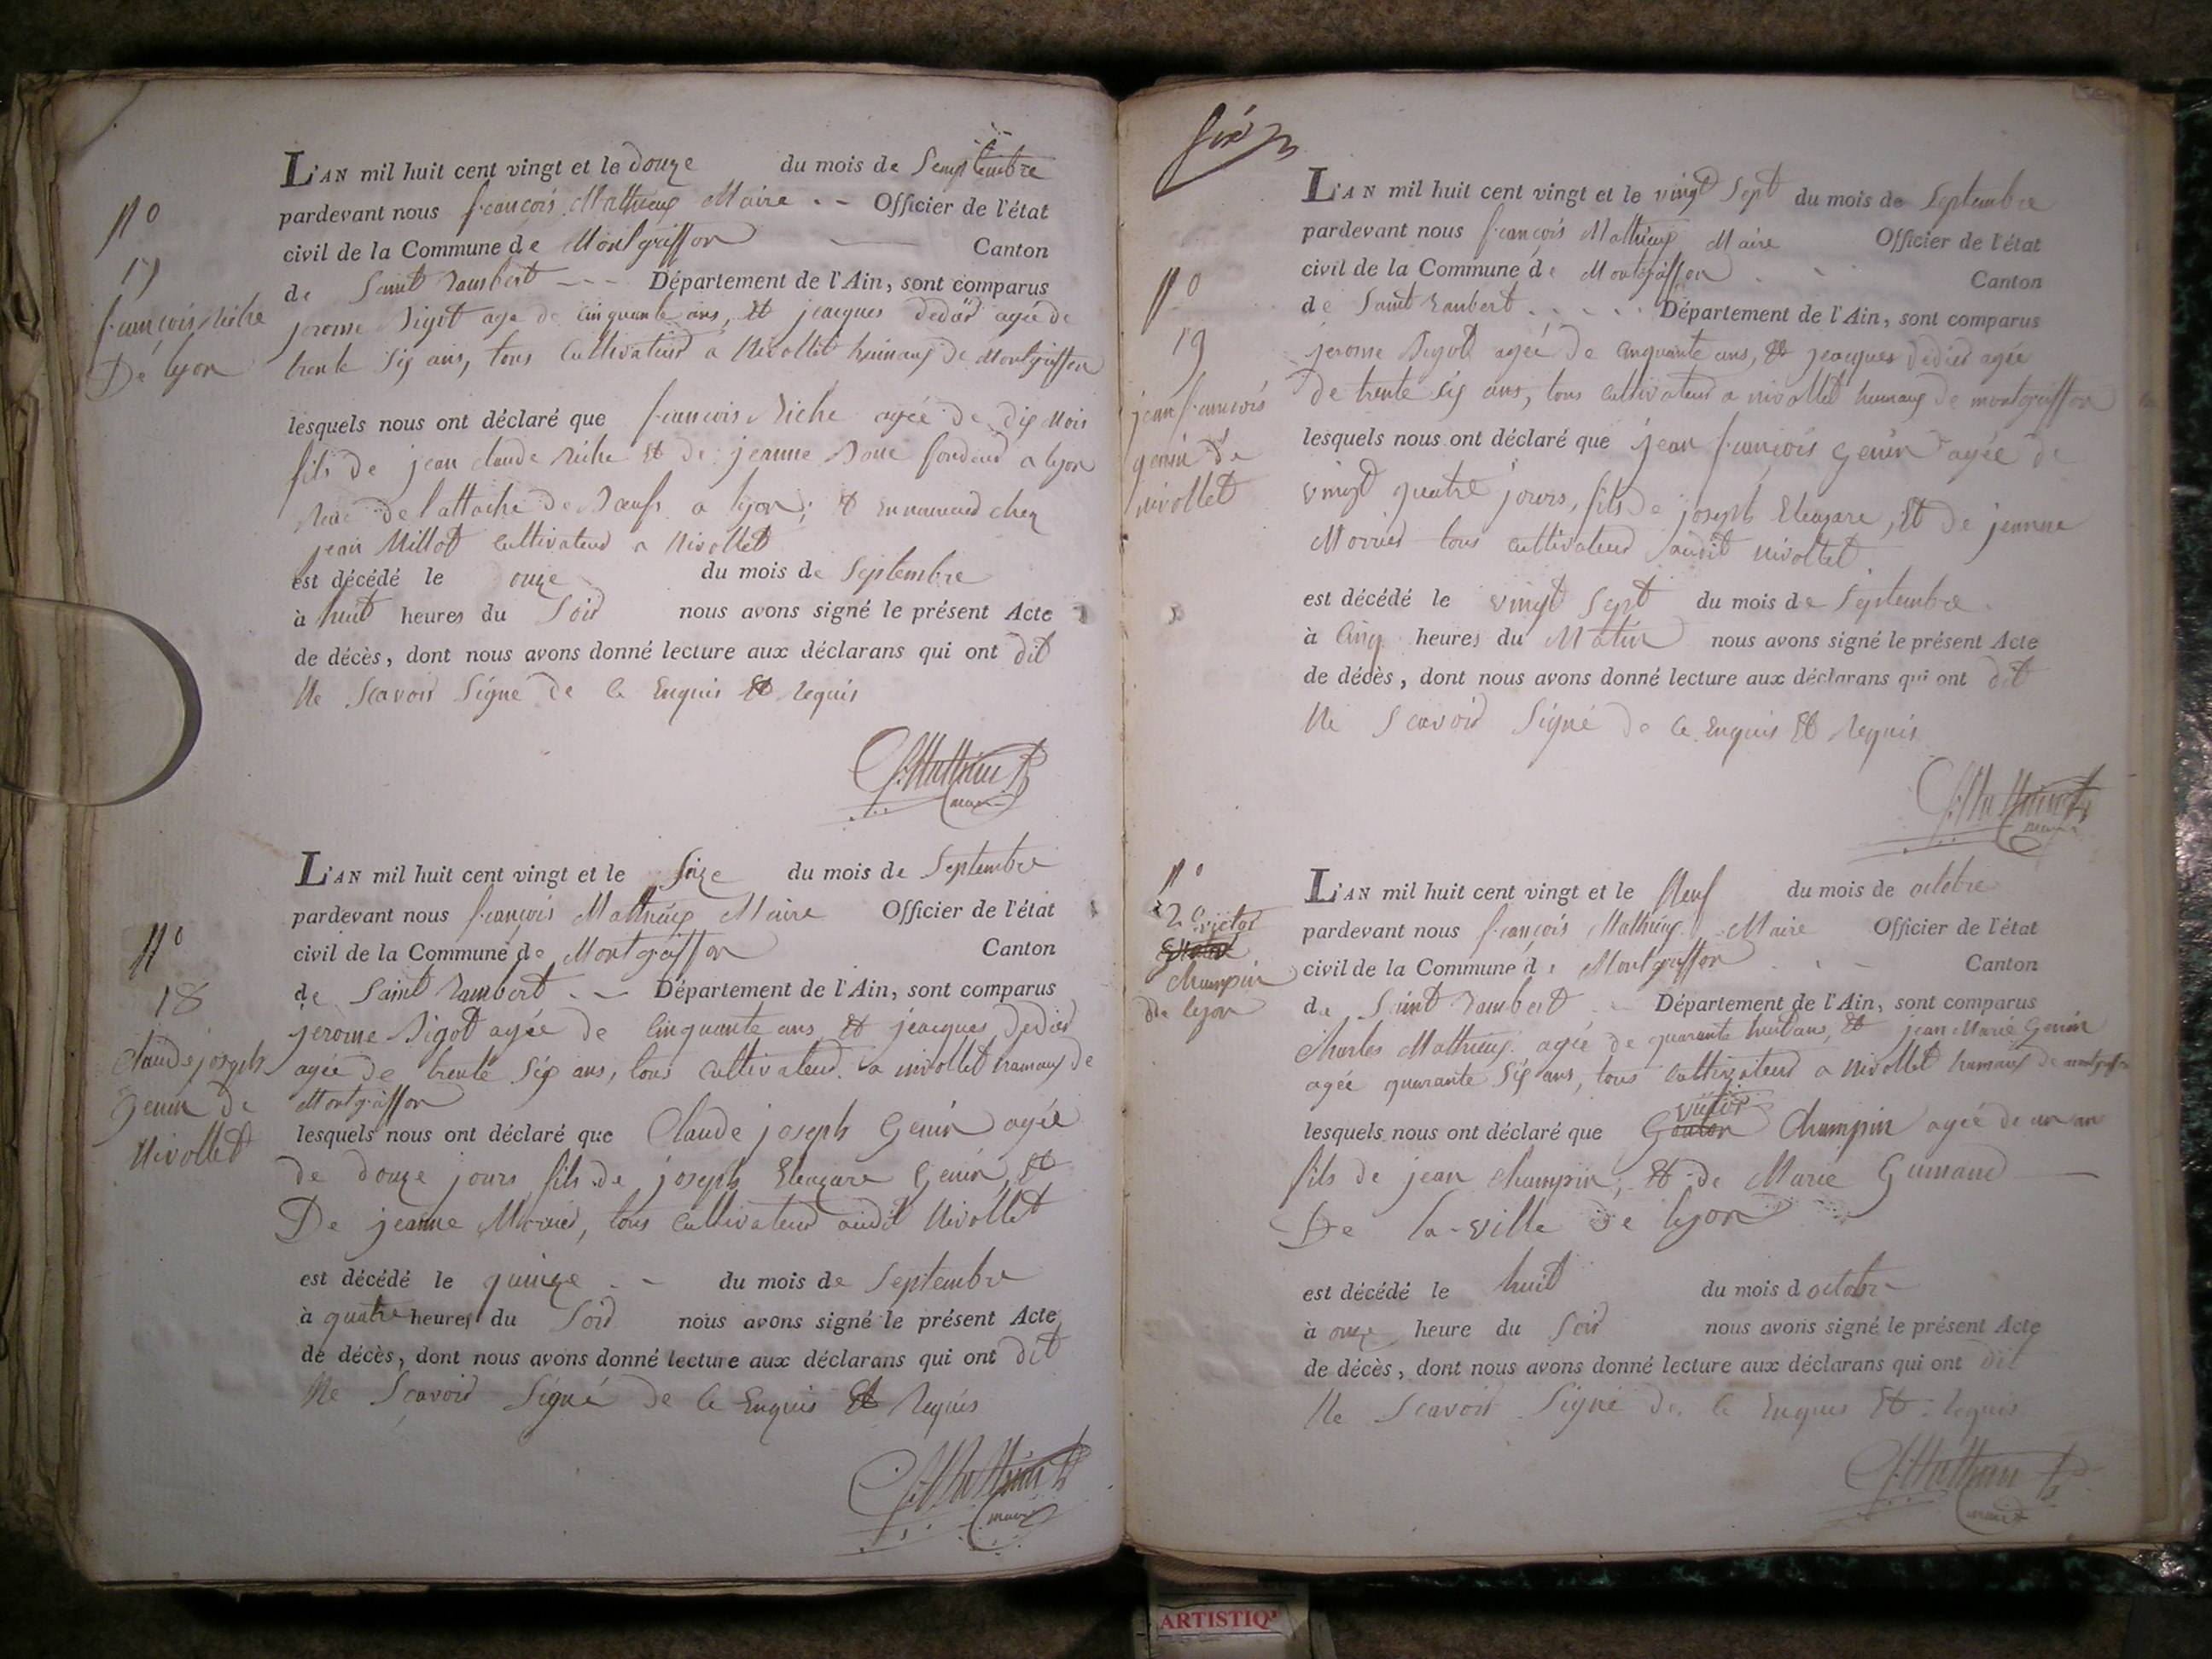 N.o
17
francois Riche
De lyon
L'AN mil huit cent vingt et le douze du mois de Septembre
pardevant nous francois Mathieux Maire Officier de l'état
civil de la Commune de Montgriffon Canton
de Saint Rambert Département de l'Ain, sont comparus
jerome Bigot age de cinquante ans, Et jeacques agée de
trente Six ans, tous Cultivateurs a Nivollet hamaux de Montgriffon
lesquels nous ont déclaré que francois Riche agée de dix Mois
fils de jean claude Riche Et de jeanne a lyon
Rue de l'attache de Bœufs a lyon; Et En chez
jean Millot Cultivateur a Nivollet
est décédé le onze du mois de Septembre
à huit heures du Soir nous avons signé le présent Acte
de décès, dont nous avons donné lecture aux déclarans qui ont dit
Ne Scavoir Signé de Ce Enquis Et Requis
f. Mathieux
maire
N.o
18
Claude joseph
Genin de
Nivollet
L'AN mil huit cent vingt et le Seize du mois de Septembre
pardevant nous françois Mathieux Maire Officier de l'état
civil de la Commune de Montgriffon Canton
de Saint Rambert Département de l'Ain, sont comparus
jerome Bigot agée de Cinquante ans, Et jeacques Dedier
agée de trente Six ans, tous Cultivateurs a nivollet hamaux de
Montgriffon
lesquels nous ont déclaré que Claude joseph Genin agée
de douze jours fils de joseph Eleazare Genin, Et
De jeanne tous Cultivateurs audit Nivollet
est décédé le quinze du mois de Septembre
à quatre heures du Soir nous avons signé le présent Acte
de décès, dont nous avons donné lecture aux déclarans qui ont dit
Ne Scavoir Signé de Ce Enquis Et Requis
f. Mathieux
maire
N.o
19
jean francois
genin de
nivollet
L'AN mil huit cent vingt et le vingt Sept du mois de Septembre
pardevant nous françois Mathieux Maire Officier de l'état
civil de la Commune de Montgriffon Canton
de Saint Rambert Département de l'Ain, sont comparus
jerome Bigot agée de Cinquante ans, Et jeacques Dedier agée
De trente Six ans, tous Cultivateurs a nivollet hamaux de montgriffon
lesquels nous ont déclaré que jean françois Genin agée de
vingt quatre jours, fils de joseph Eleazare, Et de jeanne
tous cultivateurs audit nivollet
est décédé le vingt Sept du mois de Septembre
à Cinq heures du Matin nous avons signé le présent Acte
de décès, dont nous avons donné lecture aux déclarans qui ont dit
Ne Scavoir Signé de Ce Enquis Et Requis
f. Mathieux
maire
N.o
20 victor
champin
De lyon
L'AN mil huit cent vingt et le Neuf du mois de octobre
pardevant nous françois Mathieux Maire Officier de l'état
civil de la Commune de Montgriffon Canton
de Saint Rambert Département de l'Ain, sont comparus
Charles Mathieux agée de quarante huit ans, Et jean Marie Genin
agée quarante Six ans, tous Cultivateurs a Nivollet hamaux de montgriffon
victor
lesquels nous ont déclaré que Champin agée de un an
fils de jean champin, Et de Marie
De la ville de lyon
est décédé le huit du mois d octobre
à onze heure du Soir nous avons signé le présent Acte
de décès, dont nous avons donné lecture aux déclarans qui ont dit
Ne Scavoir Signé de Ce Enquis Et requis
f. Mathieux
maire
ARTISTIQ